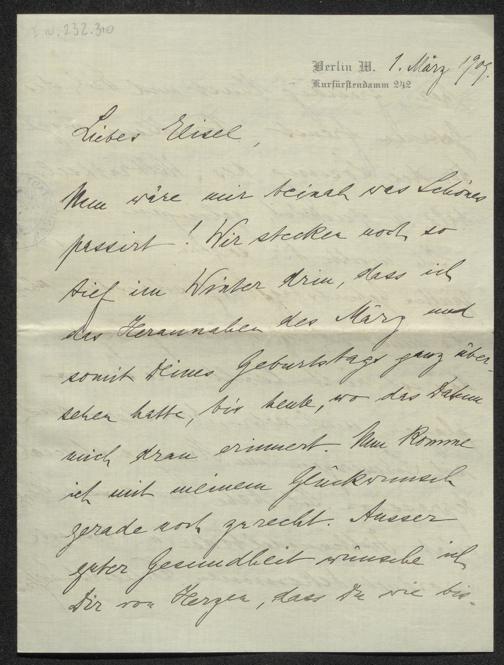 I.N. 232.310
Berlin W. 1. März 1909.
Kurfürstendamm 242
Liebes Elisel,
Nun wäre mir beinah was Schönes
passirt! Wir stecken noch so
tief im Winter drin, dass ich
das Herannahen des März und
somit Deines Geburtstags ganz über-
sehen hatte, bis heute, wo das Datum
mich dran erinnert. Nun komme
ich mit meinem Glückwunsch
gerade noch zurecht. Ausser
guter Gesundheit wünsche ich
Dir von Herzen, dass Du wie bis-